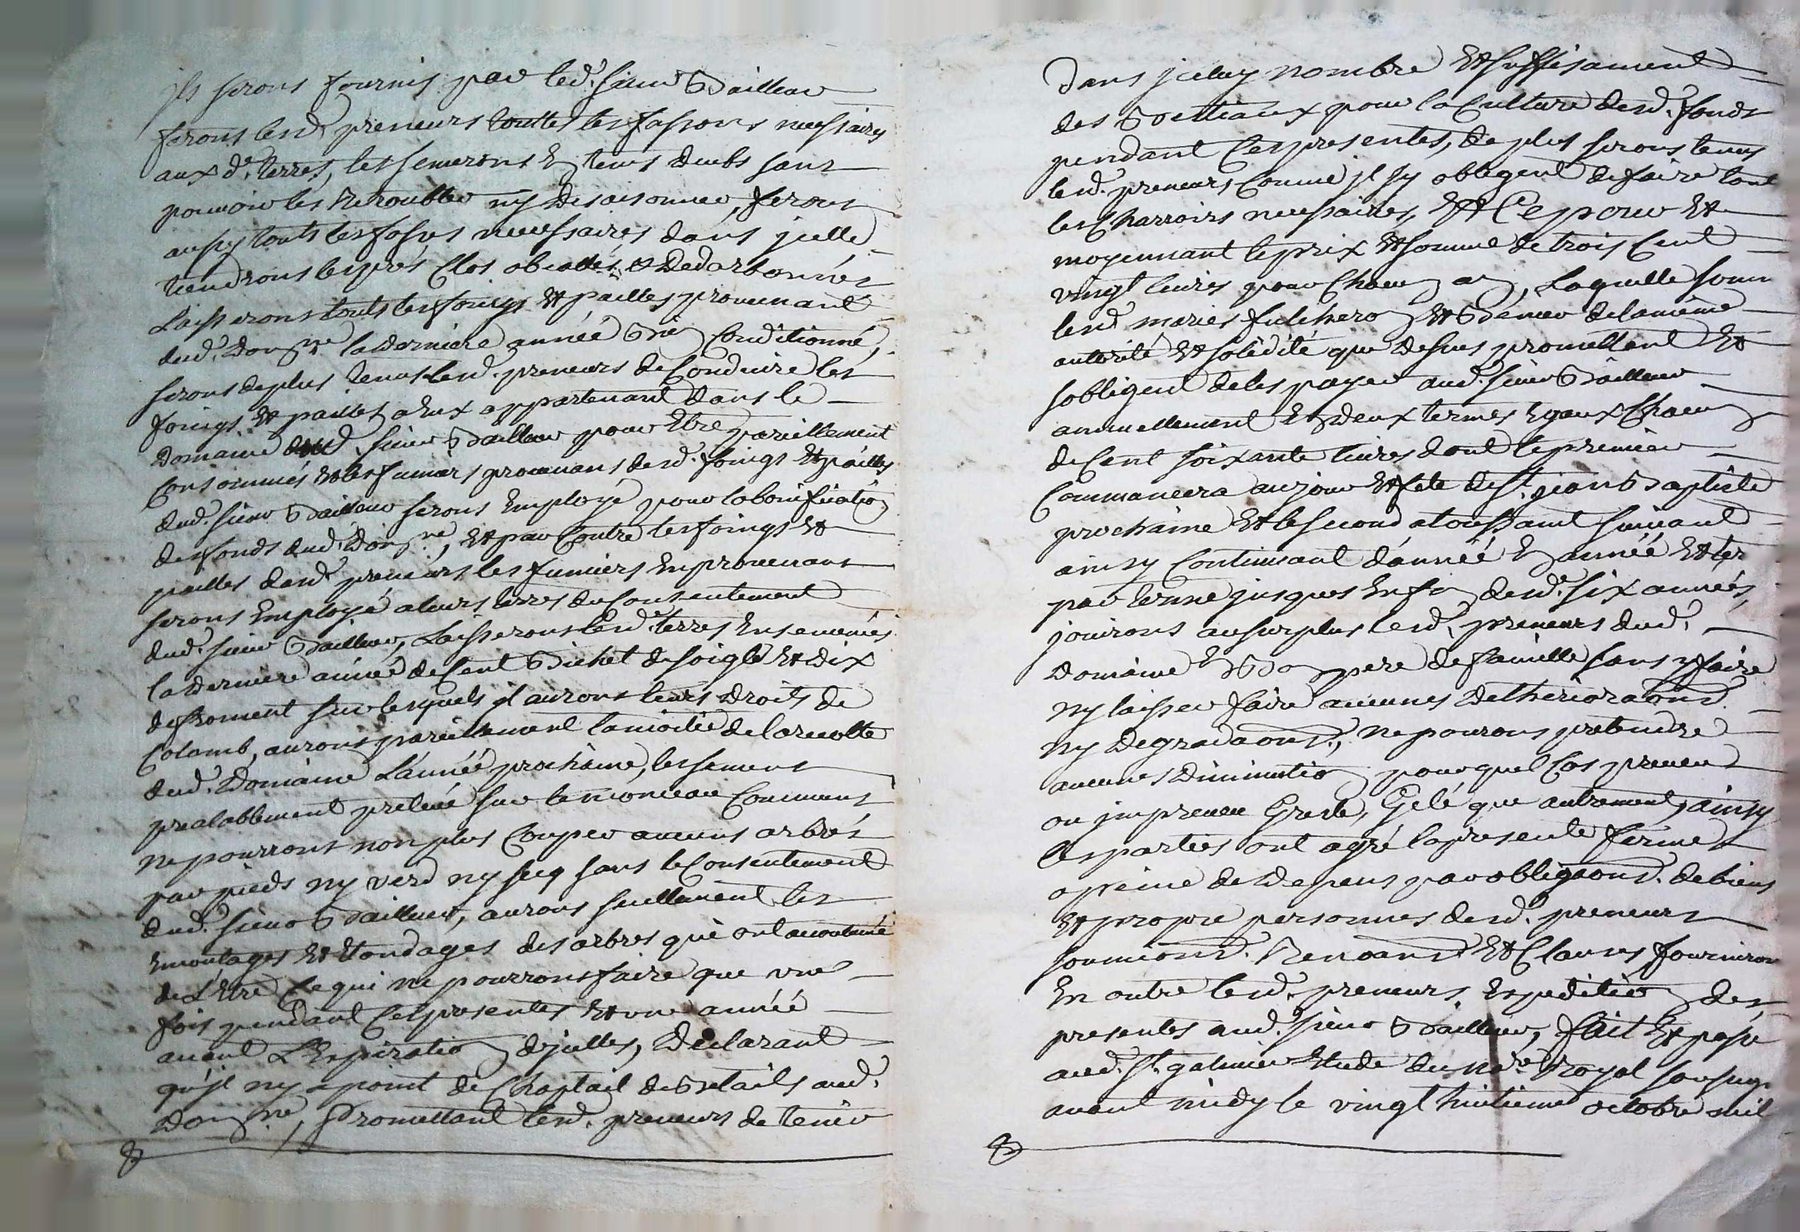 ils seront fournis par led. sieur Bailleur
feront lesd. preneurs touttes les fassons necessaires
aux d. terres, les semerons En tems deubs sans
pouvoir les Retroubler ny Desaisonner, feront
aussy touts les fosses necessaires dans jcelle
tiendrons les prés Clos
Laisserons touts les foings Et pailles provenant
dud. Domne la Derniere année Bien Conditionné,
serons de plus tenus lesd. preneurs de Conduire les
foings Et pailles a Eux appartenant dans le
Domaine dud. sieur Bailleur pour Etre pareillement
Consommés Et les fumiers provenans desd. foings Et pailles
dud. sieur Bailleur serons Employé pour la bonification
des fonds dud. Domne, Et par Contre les foings Et
pailles desd. preneurs les fumiers En provenant
serons Employé a leurs terres du Consentement
dud. sieur Bailleur, Laisserons lesd. terres Ensemencés
la Derniere année de Cent Bichet de soigle Et Dix
de froment sur lesquels jl aurons leurs Droits de
Colomb, aurons pareillement la moitié de la recolte
dud. Domaine L'année prochaine, les semens
prealablement prelevé sur le monceau Commun
Ne pourrons non plus Couper aucuns arbres
par pieds ny verd ny secq sans le Consentement
dud. sieur Bailleur, aurons seullement les
Emontages Et Etondages des arbres qui ont accoutumé
de L'Etre Ce qui ne pourrons faire que une
fois pendant Ces presentes Et une année
avant L'Expiration d'jcelles, Declarant
qu'jl ny a point de Chaptail de Betails aud.
Domne, Promettant lesd. preneurs de tenir
Dans jceluy nombre Et suffisament
des Bestiaux pour la Culture desd. fonds
pendant Ces presentes, De plus serons tenus
lesd. preneurs Comme jl sy obligent de faire tout
les Charroirs necessaires, Et Ce pour Et
moyennant le prix Et somme de trois Cent
vingt livres pour Chacun an, Laquelle somme
lesd. maries fulchiron Et de la méme
autorité Et solidité que Dessus promettent Et
sobligent de les payer aud. sieur Bailleur
annuellement En Deux termes Egaux Chacun
de Cent soixante livres dont le premier
Commancera au jour Et fete de St. jean Baptiste
prochaine Et le second a toussaint suivant
ainsy Continuant d'année En année Et ter
par terme jusques En fin desd. six années,
jouirons au surplus lesd. preneurs dud.
Domaine En Bon pere de famille sans y faire
ny laisser faire aucunes Detherioraons.
ny Degradaons., ne pourons pretendre
aucunes Diminution pour quel Cas preveu
ou jmpreveu Grele, Gelé que autrement, ainsy
les parties ont agré la presente ferme
a peine de Depens par obligaons. de biens
Et propre personnes desd. preneurs
soumions. Renoans. Et Clauses fourniron
En outre lesd. preneurs Expedition des
presentes aud. sieur Bailleur, fait Et passé
aud. St. galmier Etude du Nore Royal soussigné
avant midy le vingt huitieme octobre mil